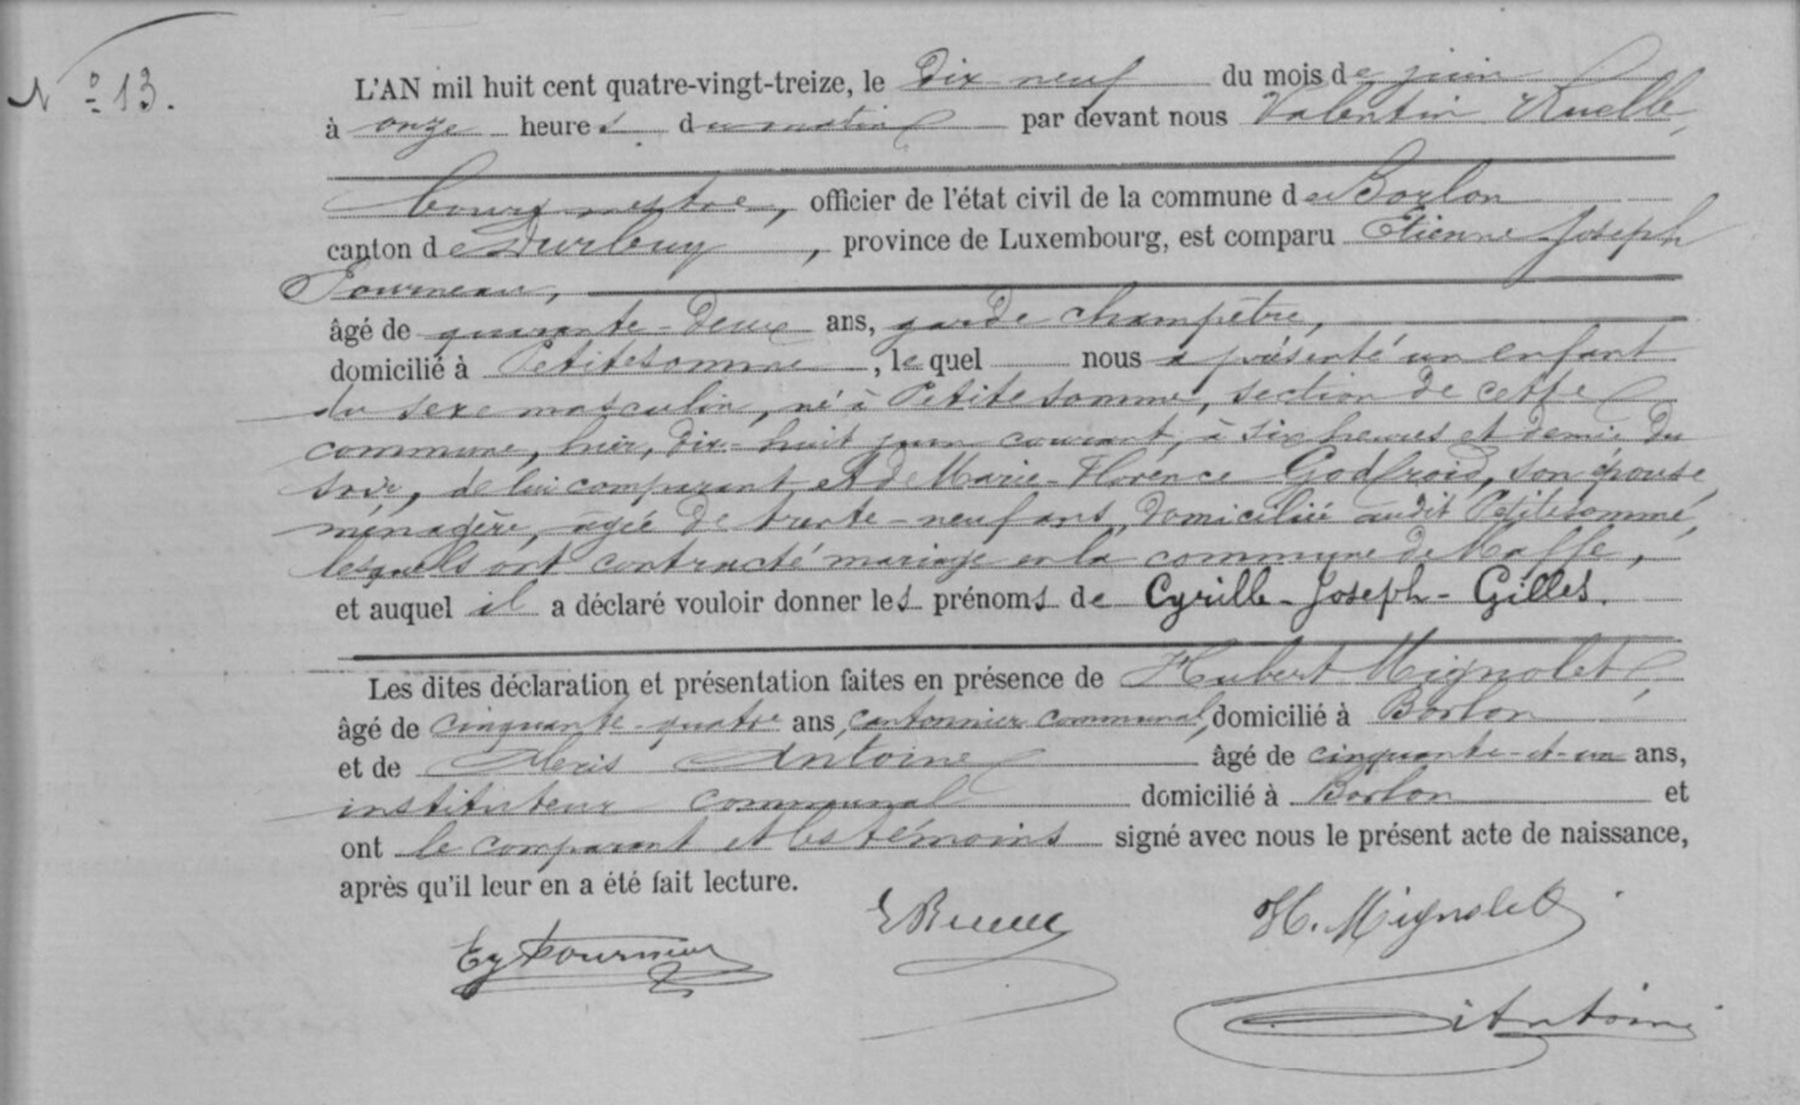 N° 13.
L'AN mil huit cent quatre-vingt-treize, le dix neuf du mois de juin
à onze heures du matin par devant nous Valentin
bourgmestre, officier de l'état civil de la commune de Borlon
canton de Durbuy, province de Luxembourg, est comparu Etienne Joseph
Fourneau,
âgé de quarante-deux ans, garde champêtre,
domicilié à Petitesomme, lequel nous a présenté un enfant
du sexe masculin, né à Petitesomme, section de cette
commune, hier, dix-huit juin courant, à six heures et demie du
soir, de lui comparant et de Marie-Florence Godfroid, son épouse,
ménagère, agée de trente-neuf ans, domiciliée audit Petitesomme,
lesquels ont contracté mariage en la commune de Maffe,
et auquel il a déclaré vouloir donner les prénoms de Cyrille-Joseph-Gilles.
Les dites déclaration et présentation faites en présence de Hubert Mignolet,
âgé de cinquante-quatre ans, cantonnier communal, domicilié à Borlon
et de Alexis Antoine âgé de cinquante-et-un ans,
instituteur communal domicilié à Borlon et
ont le comparant et les témoins signé avec nous le présent acte de naissance,
après qu'il leur en a été fait lecture.
H. Mignolet
Ej Fourneau
Antoine